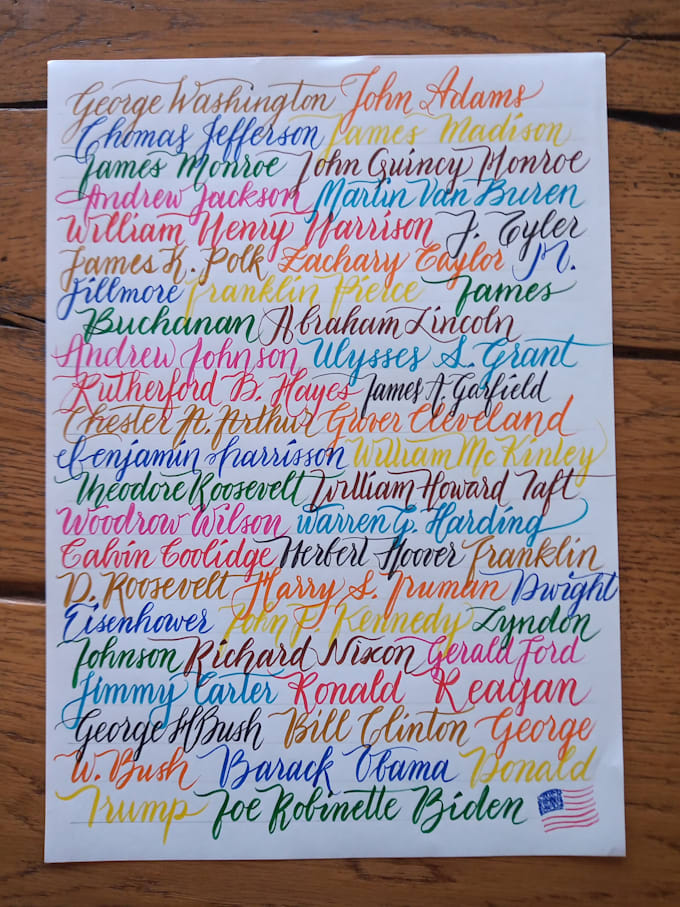 George Washington John Adams
Thomas Jefferson James Madison
James Monroe John Quincy Monroe
Andrew Jackson Martin Van Buren
William Henry Harrison J. Tyler
James K. Polk Zachary Taylor M.
Fillmore Franklin Pierce James
Buchanan Abraham Lincoln
Andrew Johnson Ulysses S. Grant
Rutherford B. Hayes James A. Garfield
Chester A. Arthur Grover Cleveland
Benjamin Harrisson William McKinley
Theodore Roosevelt William Howard Taft
Woodrow Wilson Warren G. Harding
Calvin Coolidge Herbert Hoover Franklin
D. Roosevelt Harry S. Truman Dwight
Eisenhower John F. Kennedy Lyndon
Johnson Richard Nixon Gerald Ford
Jimmy Carter Ronald Reagan
George HBush Bill Clinton George
W. Bush Barack Obama Donald
Trump Joe Robinette Biden